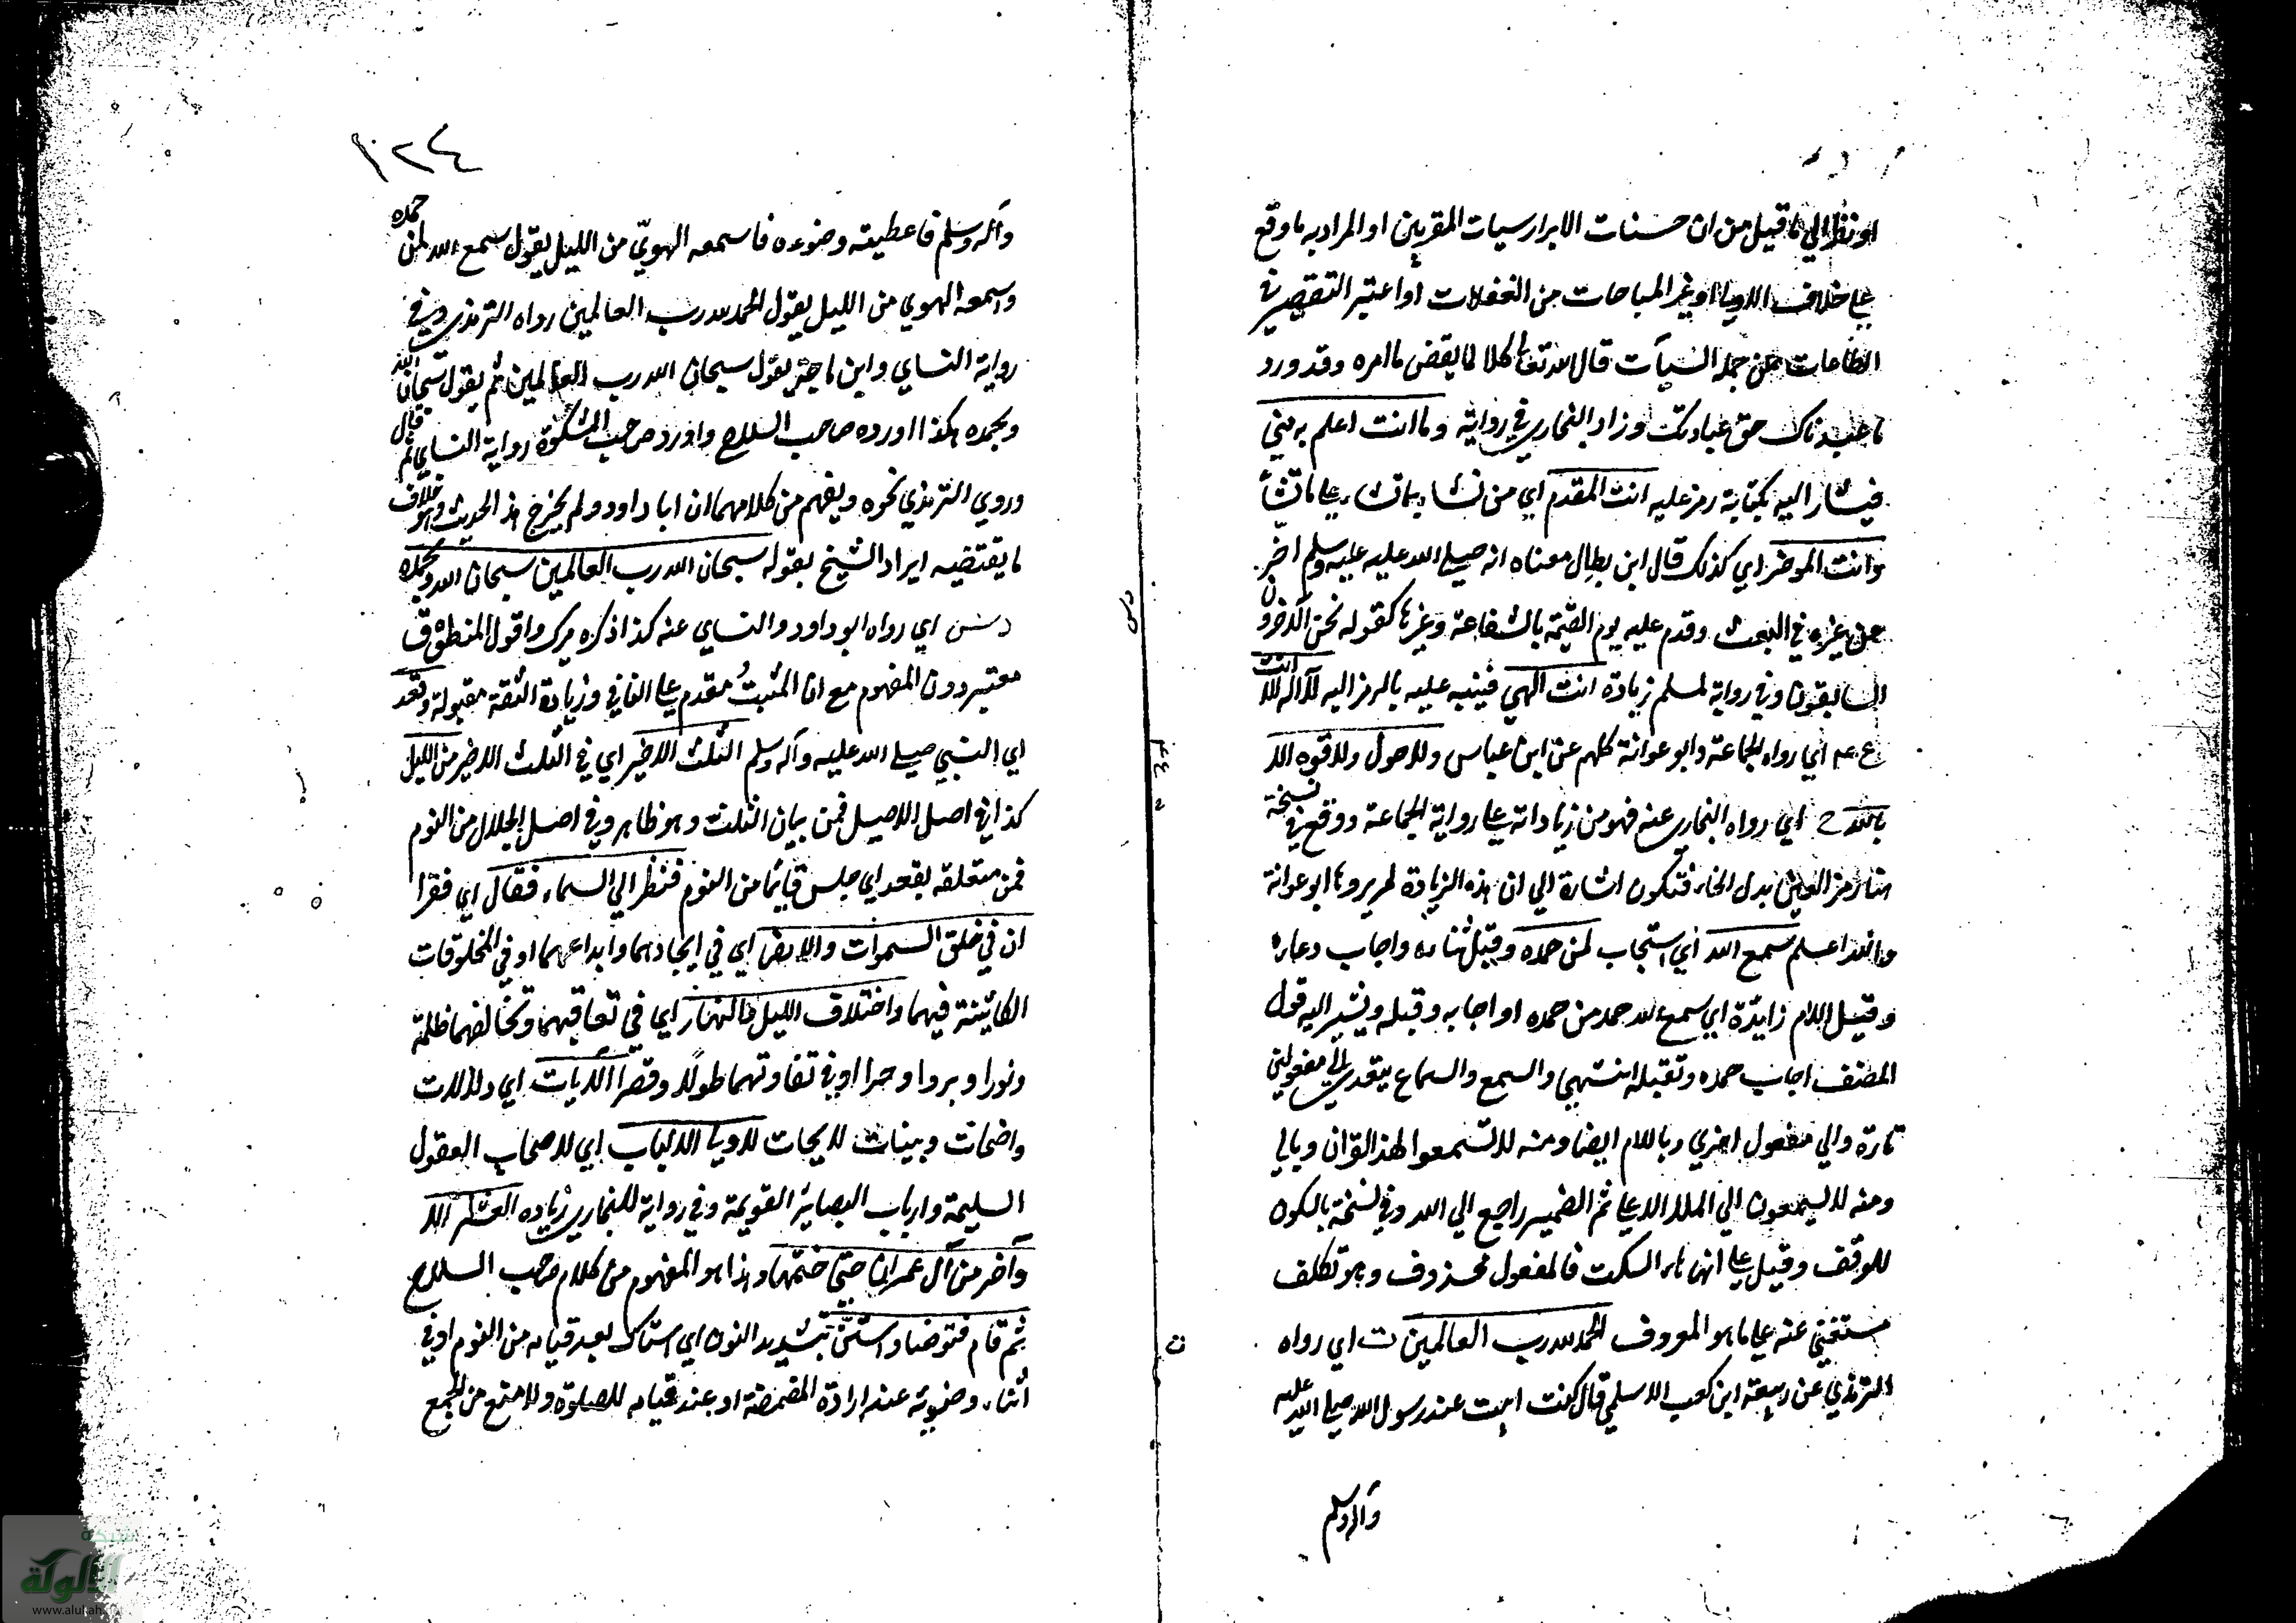 او نظر الي ما قيل من ان حسنات الابرار سيات المقربين او المراد به ما وقع
علي خلاف الاولي او غير المباحات من الغفلات او اعتبر التقصير في
الطاعات من جملة السيآت قال الله تعالي كلا لما يقض ما امره وقد ورد
ما عبدناك حق عبادتك وزاد البخاري في رواية وما انت اعلم به مني
فيشار اليه بكتابة رمز عليه انت المقدم اي من تشاء بما تشاء علي ما تشأ
وانت الموخر اي كذلك قال ابن بطال معناه انه صلي الله عليه عليه وسلم اخر
عن غيره في البعث وقدم عليه يوم القيمة بالشفاعة وغيرها كقوله نحن الاخرون
السابقون وفي رواية لمسلم زيادة انت الهي فينبه عليه بالرمز اليه لا اله الا انت
ع عه اي رواه الجماعة وابو عوانة كلهم عن ابن عباس ولا حول ولا قوه الا
بالله خ اي رواه البخاري عنه فهو من زياداته علي رواية الجماعة ووقع في نسخة
هنا رمز العين بدل الخاء فتكون اشارة الي ان هذه الزيادة لم يروها ابو عوانة
والله اعلم سمع الله اي استجاب لمن حمده وقبل ثناءه واجاب دعاءه
وقيل اللام زايدة اي سمع الله حمد من حمده او اجابه وقبله ويشير اليه قول
المصنف اجاب حمده وتقبله انتهي والسمع والسماع يتعدي الي مفعولين
تارة والي مفعول اخري وباللام ايضا ومنه لا تسمعوا لهذا القران وبالي
ومنه لا يسمعون الي الملاء الاعلي ثم الضمير راجع الي الله وفي نسخة بالسكون
للوقف وقيل علي انها هاء السكت فالمفعول محذوف وهو تكلف
مستغني عنه علي ما هو المعروف الحمد لله رب العالمين ت اي رواه
الترمذي عن ربيعة ابن كعب الاسلمي قال كنت ابيت عند رسول الله صلي الله عليه
وآله وسلم
١٢٤
وآله وسلم فاعطيته وضوءه فاسمعه الهويّ من الليل يقول سمع الله لمن حمده
واسمعه الهوي من الليل يقول الحمد لله رب العالمين رواه الترمذي وفي
رواية النساي وابن ماجة يقول سبحان الله رب العالمين ثم يقول سبحان الله
وبحمده هكذا اورده صاحب السلاح واورد صاحب المشكوة رواية النساي ثم قال
وروي الترمذي نحوه ويفهم من كلامهما ان ابا داود ولم يخرج هذا الحديث وهو خلاف
ما يقتضيه ايراد الشيخ بقوله سبحان الله رب العالمين سبحان الله وبحمده
دس اي رواه ابو داود والنساي عنه كذا ذكره ميرك واقول المنطوق
معتبر دون المفهوم مع ان المثبت مقدم علي النافي وزيادة الثقة مقبولة وقعد
اي النبي صلي الله عليه وآله وسلم الثلث الاخير اي في الثلث الاخير من الليل
كذا في اصل الاصيل فمن بيان الثلث وهو ظاهر وفي اصل الجلال من النوم
فمن متعلقه بقعد اي جلس قائما من النوم فنظر الي السماء فقال اي فقرا
ان في خلق السموات والارض اي في ايجادهما وابداعهما او في المخلوقات
الكائنة فيهما واختلاف الليل والنهار اي في تعاقبهما وتخالفهما ظلمة
ونورا وبردا وحرا او في تفاوتهما طولا وقصرا الآيات اي دلالات
واضحات وبينات لايحات لاولي الالباب اي لاصحاب العقول
السليمة وارباب البصاير القويمة وفي رواية للبخاري زياده العشر الا
وآخر من آل عمران حتي ختمها وهذا هو المفهوم من كلام صاحب السلاح
ثم قام فتوضا واستنّ بتشديد النون اي استاك بعد قيامه من النوم او في
اثناء وضوئه عند ارادة المضمضة او عند قيامه للصلوة ولا منع من الجمع